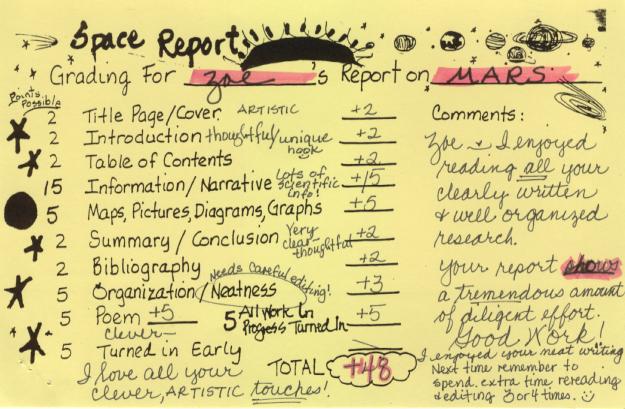 Space Report
Grading For Zoe 's Report on MARS
Points Possible
2 Title Page/Cover ARTISTIC +2
2 Introduction thoughtful/unique hook +2
2 Table of Contents +2
15 Information/Narrative Lots of scientific info! +15
5 Maps, Pictures, Diagrams, Graphs +5
2 Summary/Conclusion Very clear- thoughtful +2
2 Bibliography +2
5 Organization/Neatness Needs careful editing! +3
5 Poem +5 5 All Work In Progress Turned In +5
clever-
5 Turned in Early
TOTAL +48
I love all your
clever, ARTISTIC touches!
Comments:
Zoe - I enjoyed
reading all your
clearly written
& well organized
research.
Your report shows
a tremendous amount
of diligent effort.
Good Work!
I enjoyed your neat writing
Next time remember to
spend extra time rereading
& editing 3 or 4 times.